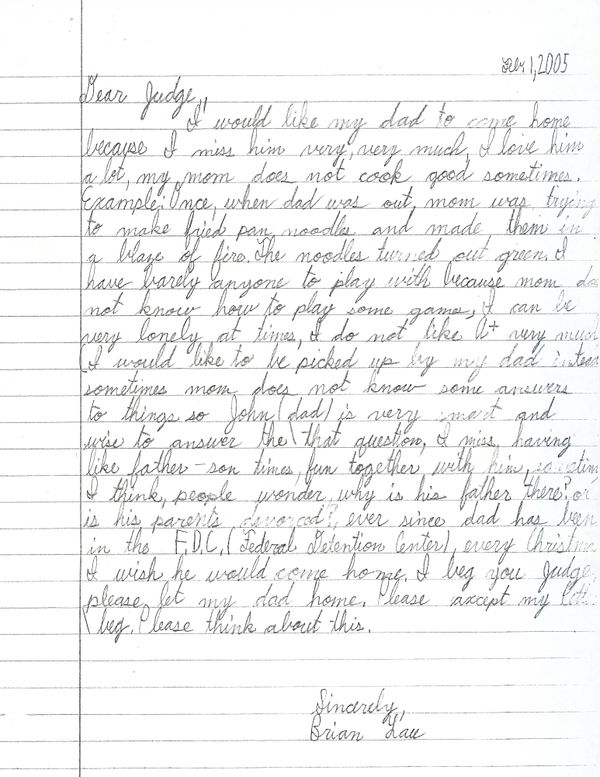 Feb 1, 2005
Dear Judge,,
I would like my dad to come home
because I miss him very, very much, I love him
a lot, my mom does not cook good sometimes.
Example: Once, when dad was out, mom was trying
to make fried pan noodles and made them in
a blaze of fire. The noodles turned out green. I
have barely anyone to play with because mom do
not know how to play some games, I can be
very lonely at times, I do not like A+ very much
(I would like to be picked up by my dad instead
sometimes mom does not know some answers
to things so John (dad) is very smart and
wise to answer the that question, I miss having
like father-son times, fun together with him, sometim
I think, people wonder why is his father there? or
is his parents devorced?, ever since dad has been
in the F.D.C. (Federal Detention Center), every Christma
I wish he would come home. I beg you Judge,
please let my dad home. Please axcept my
beg. Please think about this.
Sincerely,
Brian